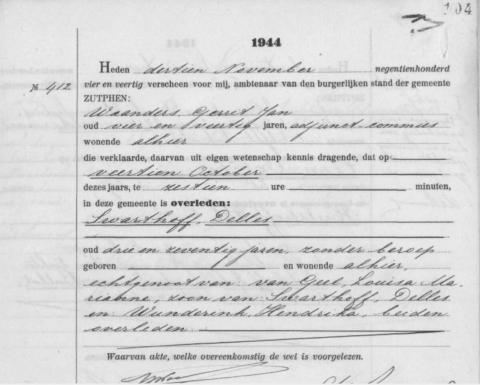 104
1944
Heden dertien November negentienhonderd
№ 412 vier en veertig verscheen voor mij, ambtenaar van den burgerlijken stand der gemeente
ZUTPHEN:
Weanders, Gerrit Jan
oud vier en veertig jaren, adjunct-commies
wonende alhier
die verklaarde, daarvan uit eigen wetenschap kennis dragende, dat op
veertien October
dezes jaars, te zestien ure minuten,
in deze gemeente is overleden:
Swarthoff, Delles
oud drie en zeventig jaren, zonder beroep
geboren en wonende alhier,
echtgenoot van van Gue, Louisa Ma-
rianne, zoon van Swarthoff, Delles
en Wunderink, Hendrika, beiden
overleden
Waarvan akte, welke overeenkomstig de wet is voorgelezen.